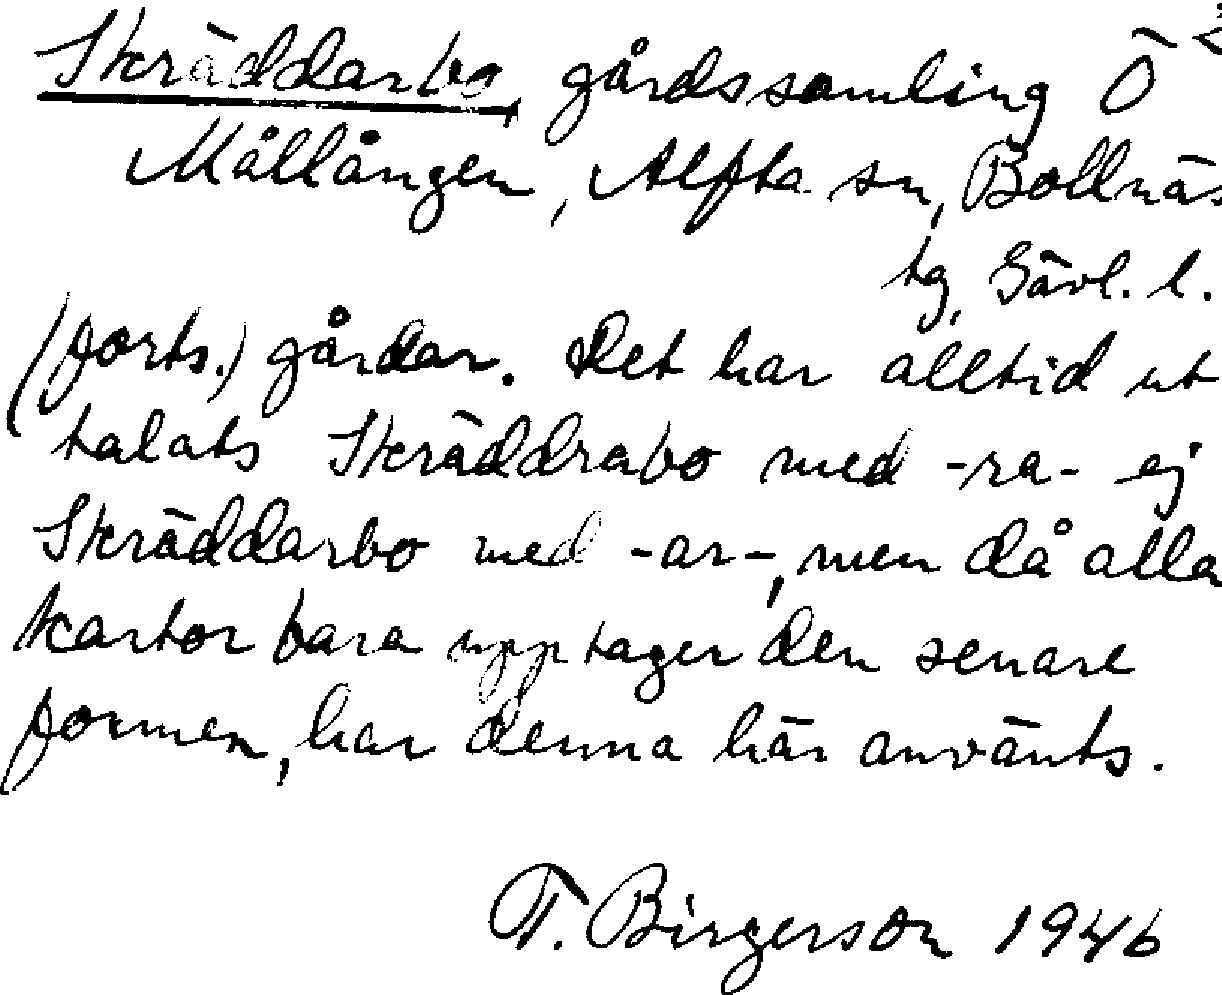 Skräddarbo, gårdssamling Ö
Mållången, Alfta sn, Bollnäs
tg, Gävl. l.
(forts.) gårdar. Det har alltid ut
talats Skräddrabo med -ra- ej
Skräddarbo med -ar-, men då alla
kartor bara upptager den senare
formen, har denna här använts.
T. Birgerson 1946